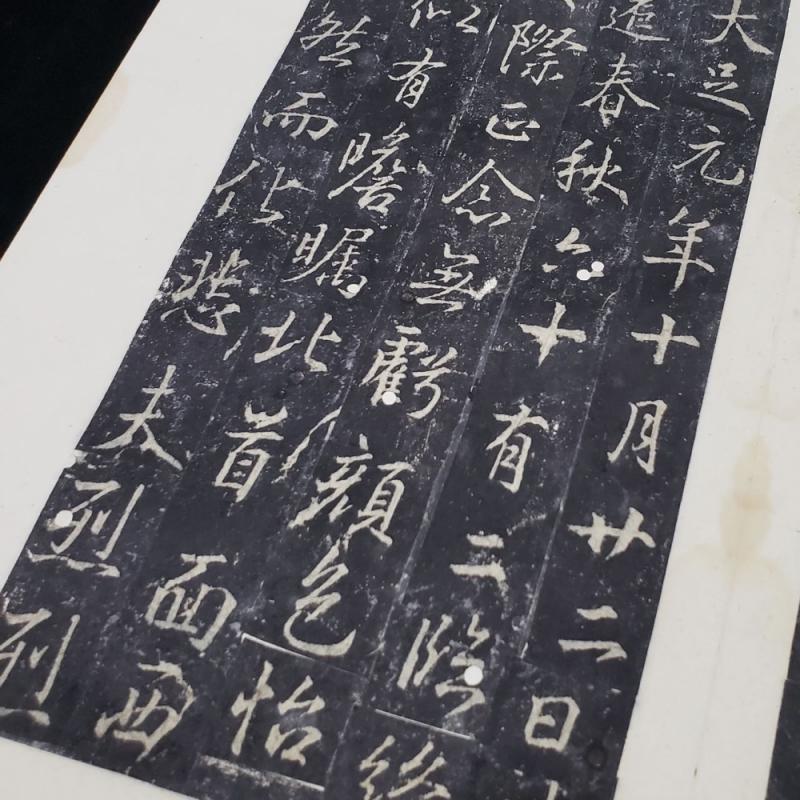 大足元年十月廿二日
春秋六十有二臨終
際正念無虧顏色怡
似有瞻矚北首面西
然而化悲夫烈烈